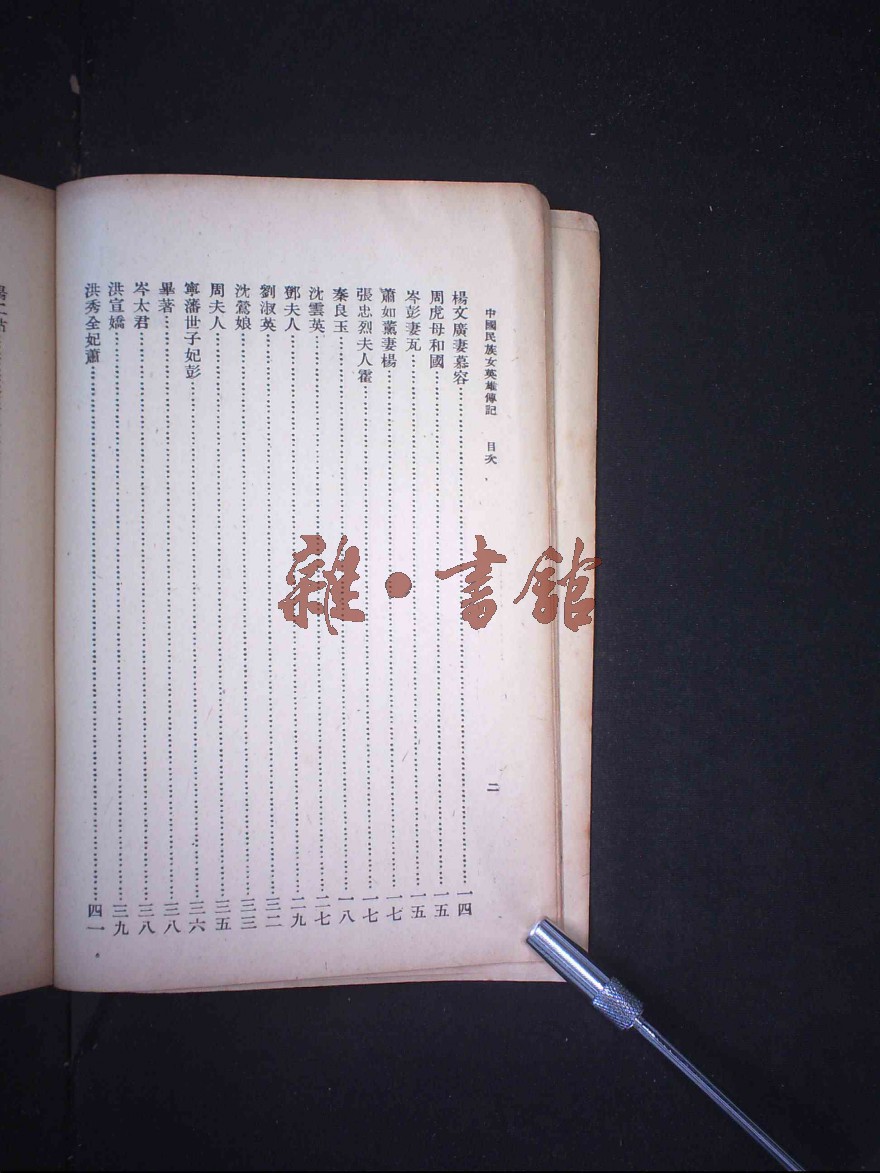 中國民族女英雄傳記 目次 二
楊文廣妻慕容……一四
周虎母和國……一五
岑彭妻瓦……一五
蕭如薰妻楊……一七
張忠烈夫人霍……一七
秦良玉……一八
沈雲英……二七
鄧夫人……二九
劉淑英……三二
沈鶯娘……三三
周夫人……三五
寧藩世子妃彭……三六
畢著……三八
岑太君……三八
洪宣嬌……三九
洪秀全妃蕭……四一
雜·書館